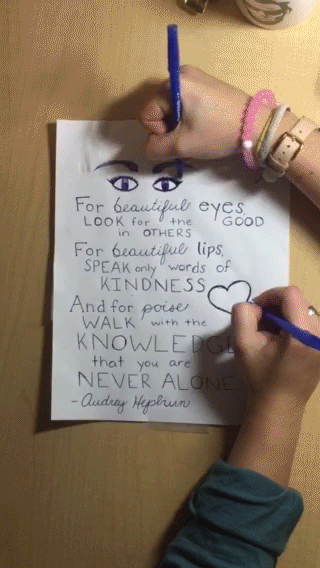 For beautiful eyes,
LOOK for the GOOD
in OTHERS
For beautiful lips,
SPEAK only words of
KINDNESS
And for poise
WALK with the
KNOWLEDGE
that you are
NEVER ALONE
- Audrey Hepburn